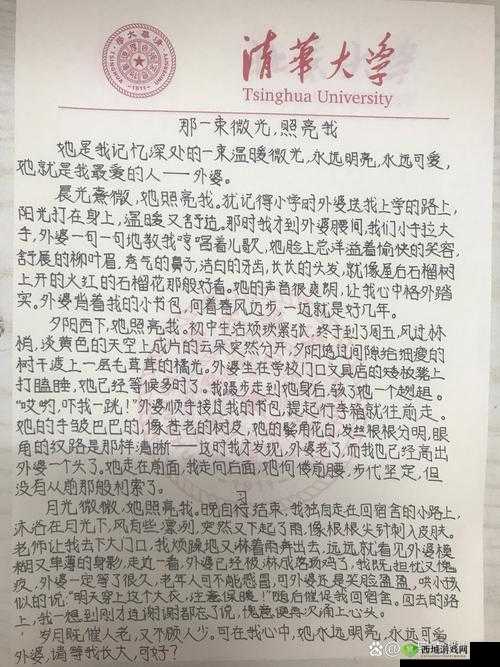 清华大学
Tsinghua University
那一束微光,照亮我
她是我记忆深处的一束温暖微光,永远明亮,永远可爱,
她就是我最爱的人——外婆。
晨光熹微,她照亮我。犹记得小学时外婆送我上学的路上,
阳光打在身上,温暖又舒适。那时我才到外婆腰间,我们小手拉大
手,外婆一句一句地教我哼唱着儿歌,她脸上总洋溢着愉快的笑容,
舒展的柳叶眉,秀气的鼻子,洁白的牙齿,长长的头发,就像屋后石榴树
上开的火红的石榴花那般好看。她的声音很爽朗,让我心中格外踏
实。外婆背着我的小书包,向着春风迈步,一迈就是好几年。
夕阳西下,她照亮我。初中生活烦琐紧张,终于到了周五,风过林
梢,淡黄色的天空上成片的云朵突然分开,夕阳透过间隙给细瘦的
树干渡上一层毛茸茸的橘光。外婆坐在学校门口文具店的矮板凳上
打瞌睡,她已经等候多时了。我蹑步走到她身后,骇了她一个趔趄。
“哎哟,吓我一跳!”外婆顺手接过我的书包,提起行李箱就往前走。
她的手皱巴巴的,像苍老的树皮,她的鬓角花白,发丝根根分明,眼
角的纹路是那样清晰——这时我才发现,外婆老了,而我也已经高出
外婆一个头了。她走在前面,我走向后面,她佝偻前腰,步代坚定,但
没有从前那般利索了。
月光微微,她照亮我。晚自习结束,我独自走在回宿舍的小路上,
沐浴在月光下,风有些凛冽,突然又下起了雨,像根根尖针刺入皮肤。
老师让我去下大门口,我烦躁地又淋着雨奔出去,远远就看见外婆模
糊又单薄的身影,走近一看,外婆已经被淋成落汤鸡了,我既担忧又愧
疚,外婆一定等了很久,老年人可不能感冒,可外婆还是笑脸盈盈,哄小孩
似的说:“明天穿上这个大衣,注意保暖!”随后催促我回宿舍。回去的路
上,我一想到刚才连谢谢都忘了说,愧意便再次涌上心头。
岁月既催人老,又不顾人少,可在我心中,她永远明亮,永远可爱
外婆,请等我长大,可好?
西城游戏网